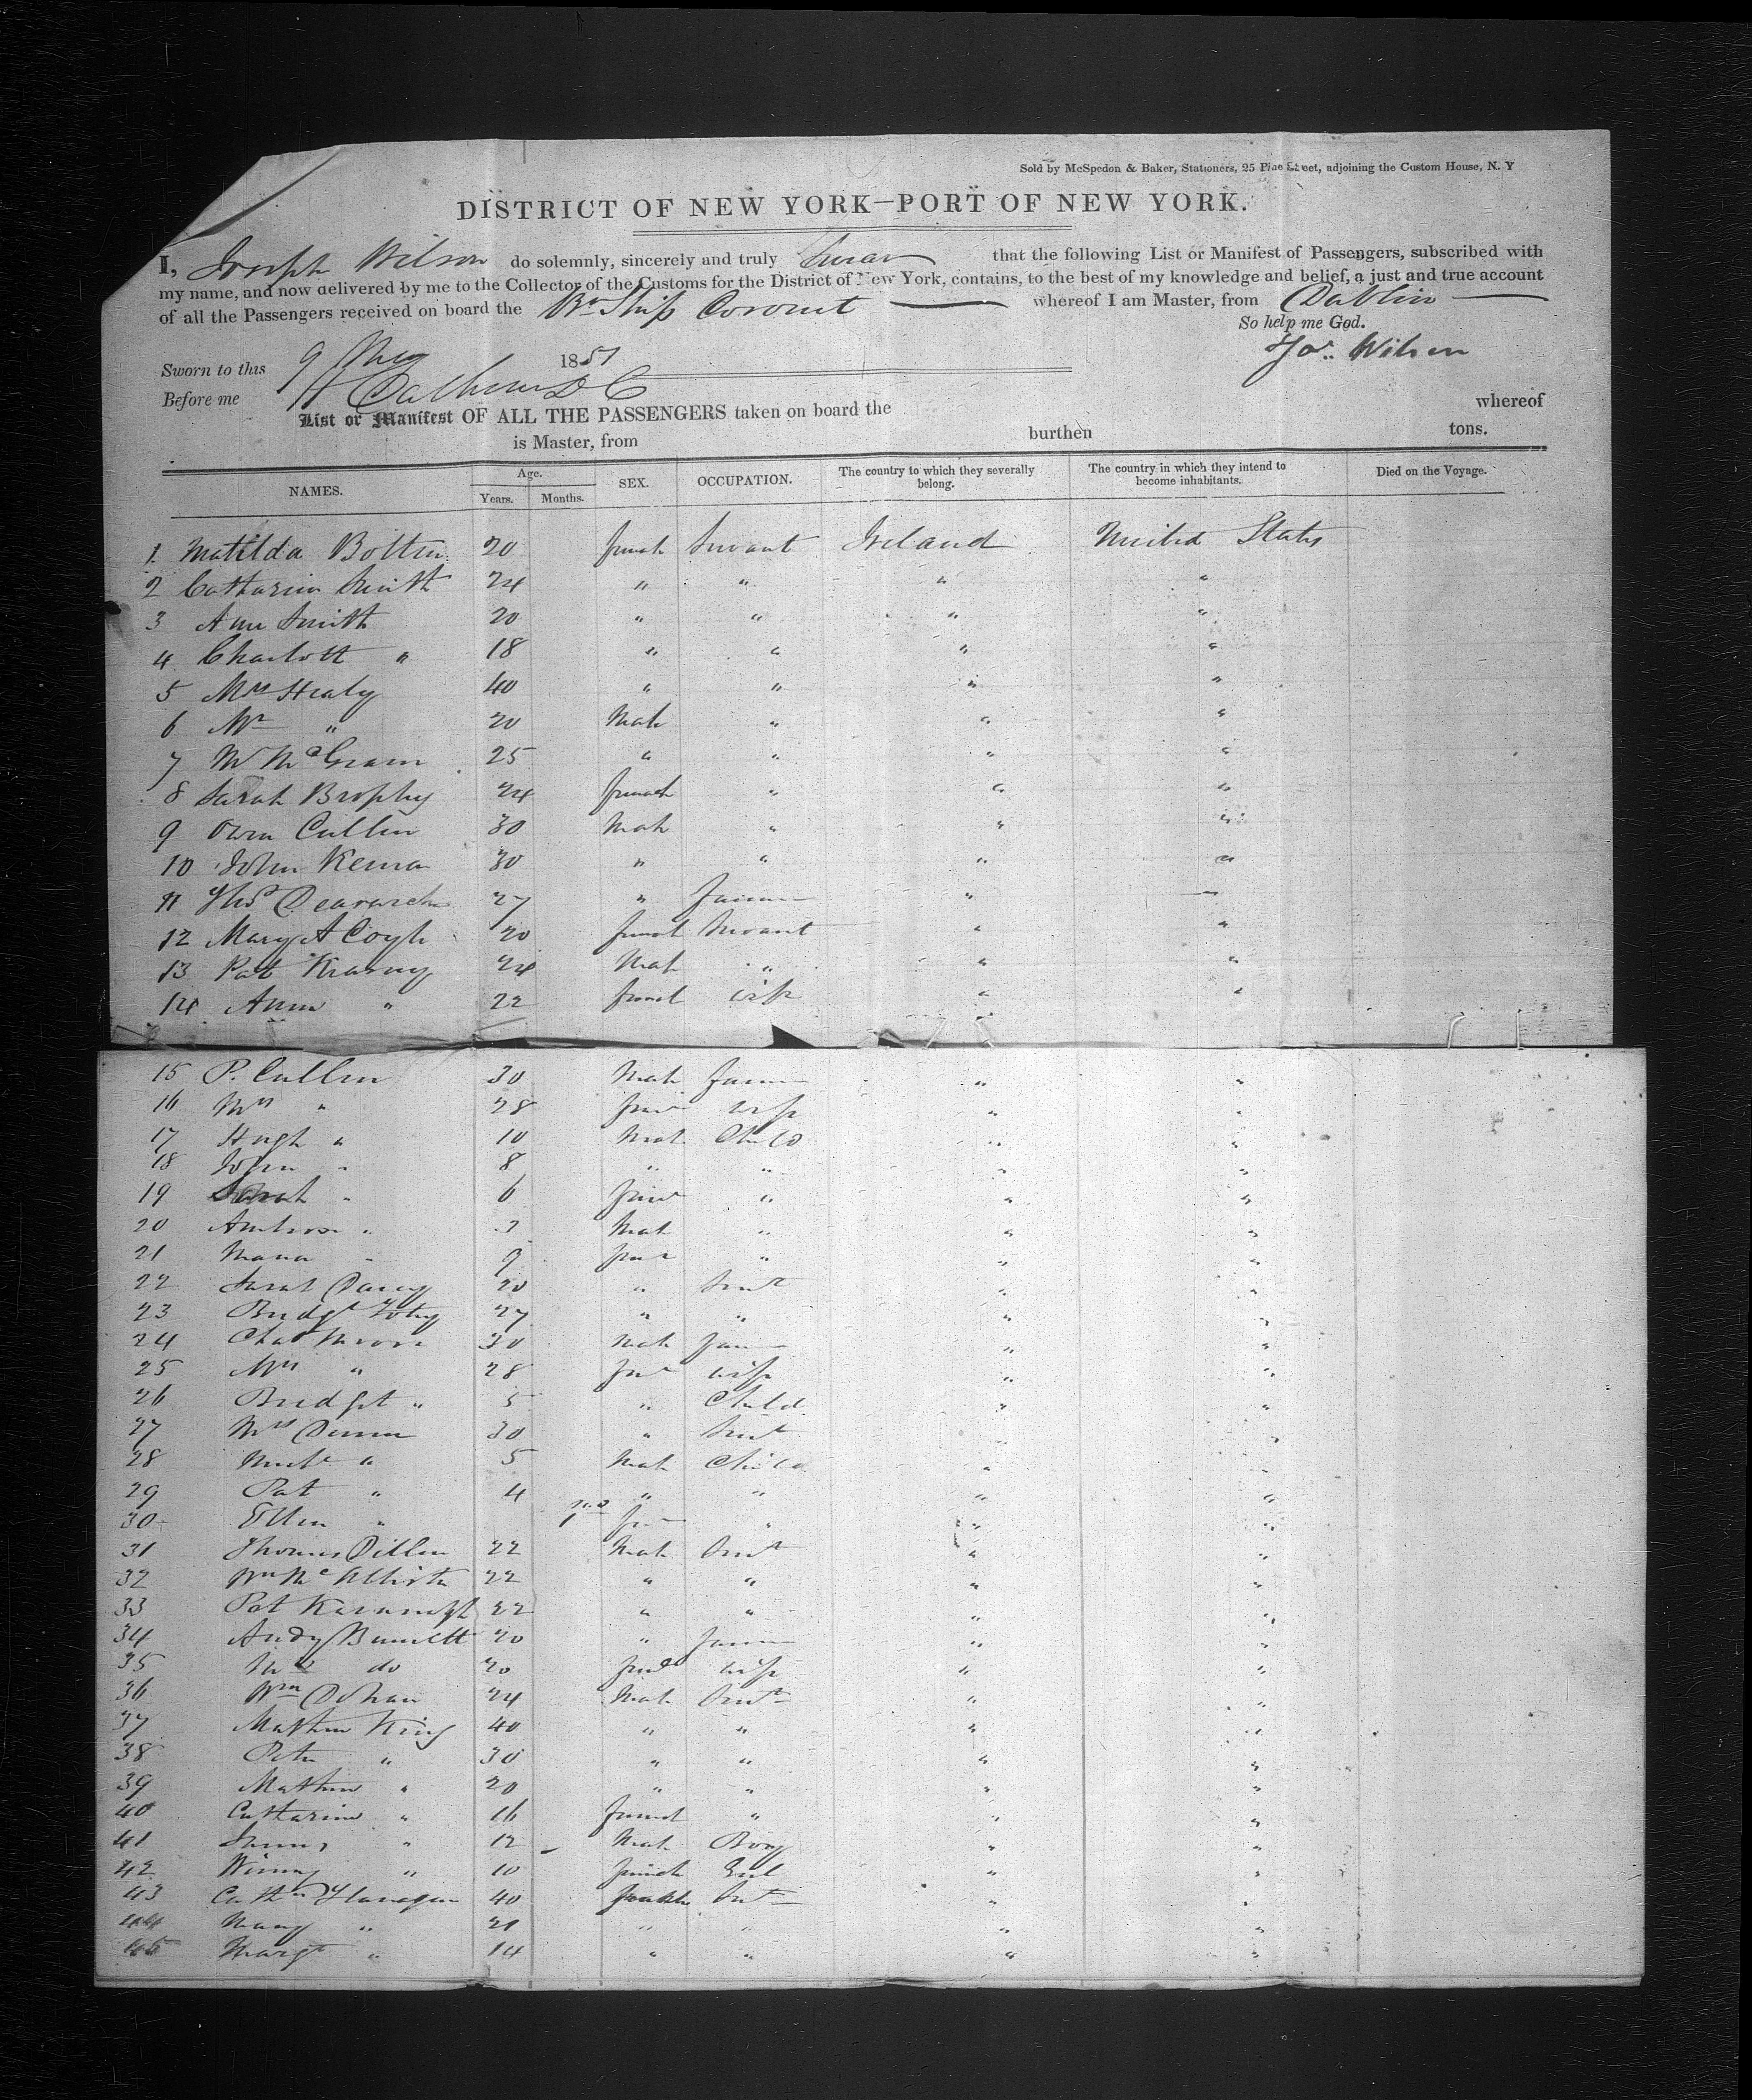 Sold by McSpedon & Baker, Stationers, 25 Pine Street, adjoining the Custom House, N. Y
DISTRICT OF NEW YORK—PORT OF NEW YORK.
I, Joseph Wilson do solemnly, sincerely and truly Swear that the following List or Manifest of Passengers, subscribed with
my name, and now delivered by me to the Collector of the Customs for the District of New York, contains, to the best of my knowledge and belief, a just and true account
of all the Passengers received on board the Br Ship Coronet whereof I am Master, from Dublin
So help me God.
Sworn to this 9 May 1851 Jos. Wilson
Before me
List or Manifest OF ALL THE PASSENGERS taken on board the whereof
is Master, from burthen tons.
NAMES. Age. Years. Months. SEX. OCCUPATION. The country to which they severally belong. The country in which they intend to become inhabitants. Died on the Voyage.
1 Matilda Botten 20 female Servant Ireland United States
2 Catharine Smith 24 " " " "
3 Ann Smith 20 " " " "
4 Charlott " 18 " " " "
5 Mrs Healy 40 " " " "
6 Mr " 20 Male " " "
7 25 " " " "
8 Sarah Brophy 24 female " " "
9 Owen Cullen 30 Male " " "
10 John 30 " " " "
11 Thos 27 " Farmer " "
12 Mary A Coyle 20 female Servant " "
13 Pat Kearney 24 Male " " "
14 Ann " 22 female wife " "
15 P. Cullen 30 Male Farmer " "
16 Mrs " 28 fem wife " "
17 Hugh " 10 Male Child " "
18 John " 8 " " " "
19 Sarah " 6 fem " " "
20 Ambrose " Male " " "
21 Maria " 9 fem " " "
22 Sarah Darcy 20 " Servt " "
23 Bridgt 27 " " " "
24 Chas Moore 30 Male Farmer " "
25 Mrs " 28 fem wife " "
26 Bridget " 5 " Child " "
27 Mrs Dunn 30 " Servt " "
28 Michl " 5 Male Child " "
29 Pat " 4 " " " "
30 Ellen " fem " " "
31 Thomas Dillon 22 Male Servt " "
32 Wm 22 " " " "
33 Pat Kavanagh 22 " " " "
34 Andy Burnett 20 " Farmer " "
35 Mrs do 20 fem wife " "
36 Wm Dohan 24 Male Servt " "
37 Mathew King 40 " " " "
38 Peter " 30 " " " "
39 Mathew " 20 " " " "
40 Catharine " 16 female " " "
41 James " 12 Male Boy " "
42 Winny " 10 female Girl " "
43 Cathn Flanagan 40 female Servt " "
44 Mary " 21 " " " "
45 Margt " 14 " " " "